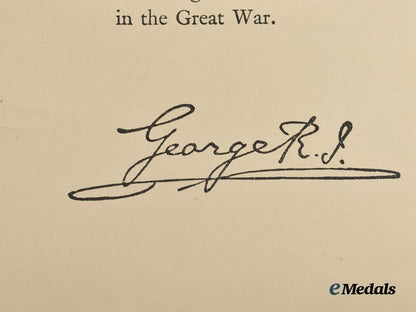 in the Great War.
George R.I.
eMedals